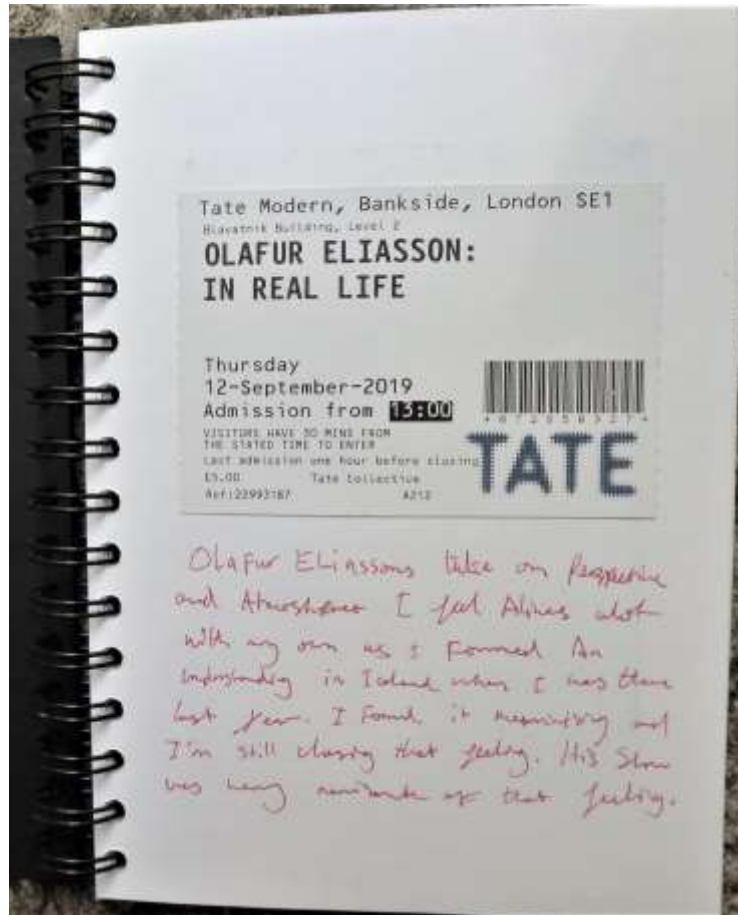 Tate Modern, Bankside, London SE1
Blavatnik Building, Level 2
OLAFUR ELIASSON:
IN REAL LIFE
Thursday
12-September-2019
Admission from 13:00
VISITORS HAVE 30 MINS FROM
THE STATED TIME TO ENTER
Last admission one hour before closing
£5.00 Tate Collective
Ref:22993187 A212
TATE
Olafur Eliassons take on Perspective
and I feel Alines alot
with my own as I Formed An
understanding in Iceland when I was there
last year. I Found it mesmerising and
I'm still chasing that feeling. His Show
was very of that feeling.